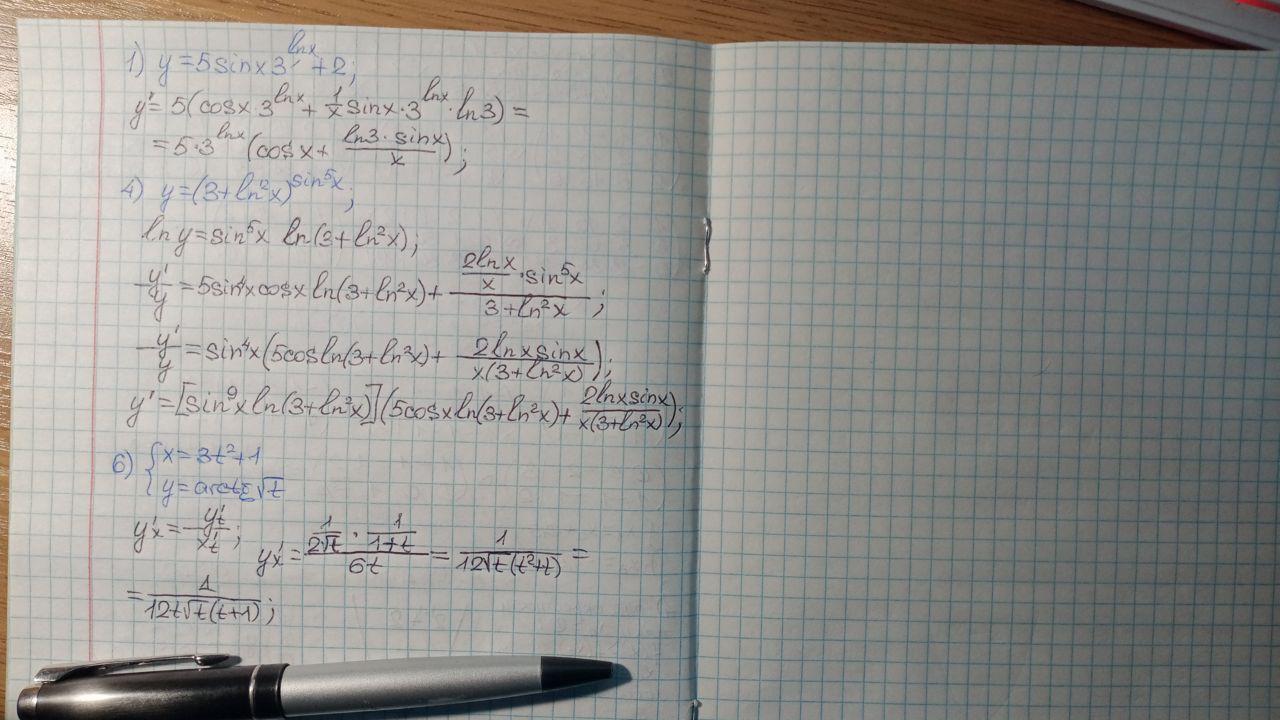 1) y=5sinx3^lnx+2;
y'=5(cosx·3^lnx+1/x sinx·3^lnx·ln3)=
=5·3^lnx(cosx+ ln3·sinx/x);
4) y=(3+ln²x)^sin⁵x;
ln y=sin⁵x ln(3+ln²x);
y'/y=5sin⁴xcosxln(3+ln²x)+(2lnx/x·sin⁵x)/(3+ln²x);
y'/y=sin⁴x(5cosln(3+ln²x)+ 2lnxsinx/x(3+ln²x));
y'=[sin⁹xln(3+ln²x)](5cosxln(3+ln²x)+2lnxsinx/x(3+ln²x));
6) {x=3t²+1
y=arctg√t
y'x=y't/x't; y'x=(1/2√t·1/1+t)/6t=1/12√t(t²+t)=
=1/12t√t(t+1);